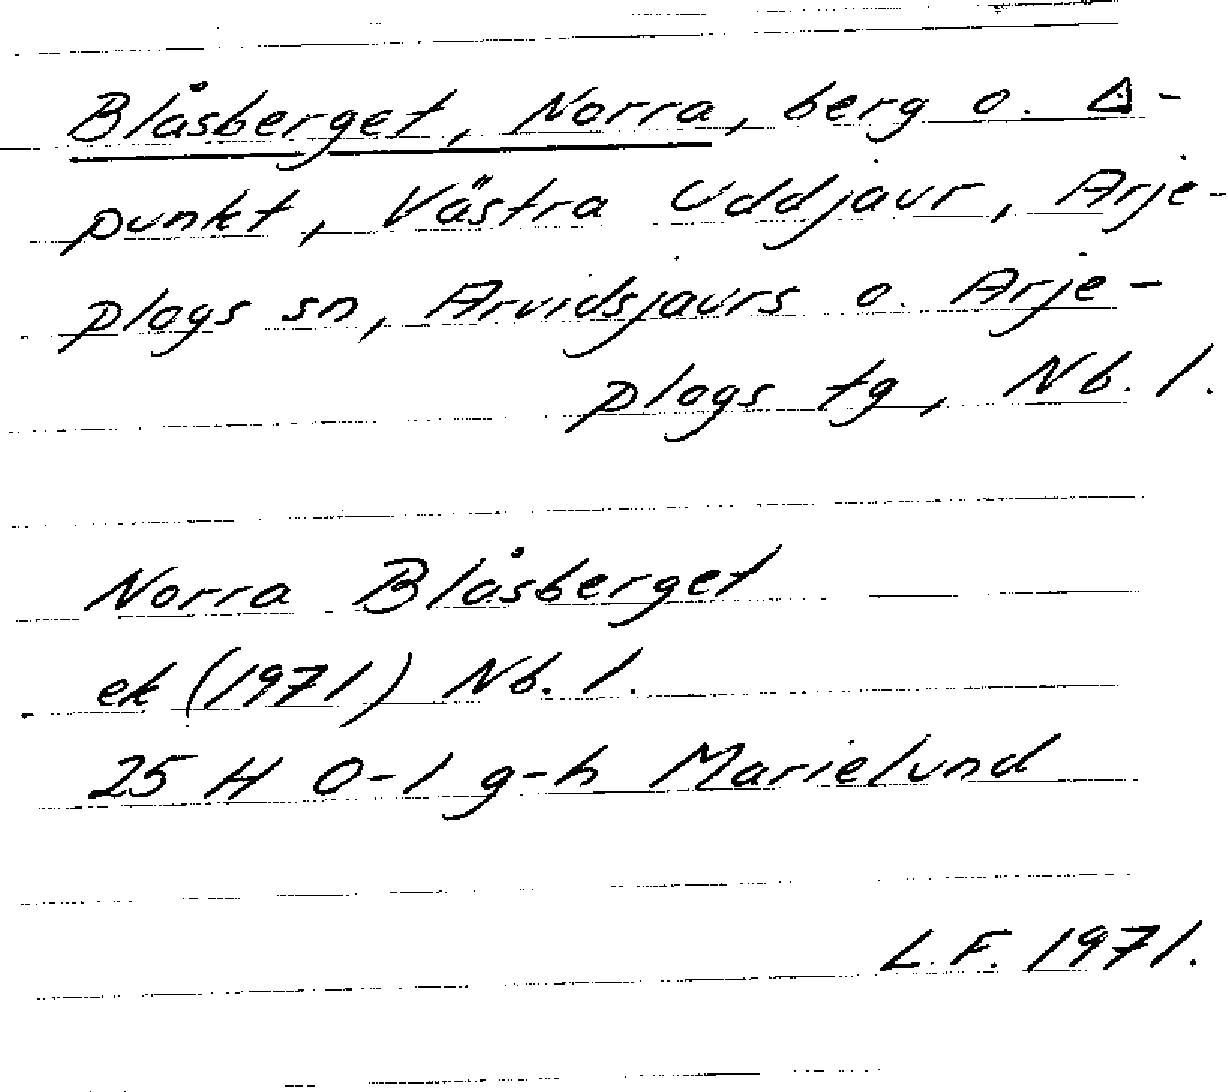 Blåsberget, Norra, berg o. △-
punkt, Västra Uddjaur, Arje-
plogs sn, Arvidsjaurs o. Arje-
plogs tg, Nb. l.
Norra Blåsberget
ek (1971) Nb. l.
25 H 0-1 g-h Marielund
L. F. 1971.